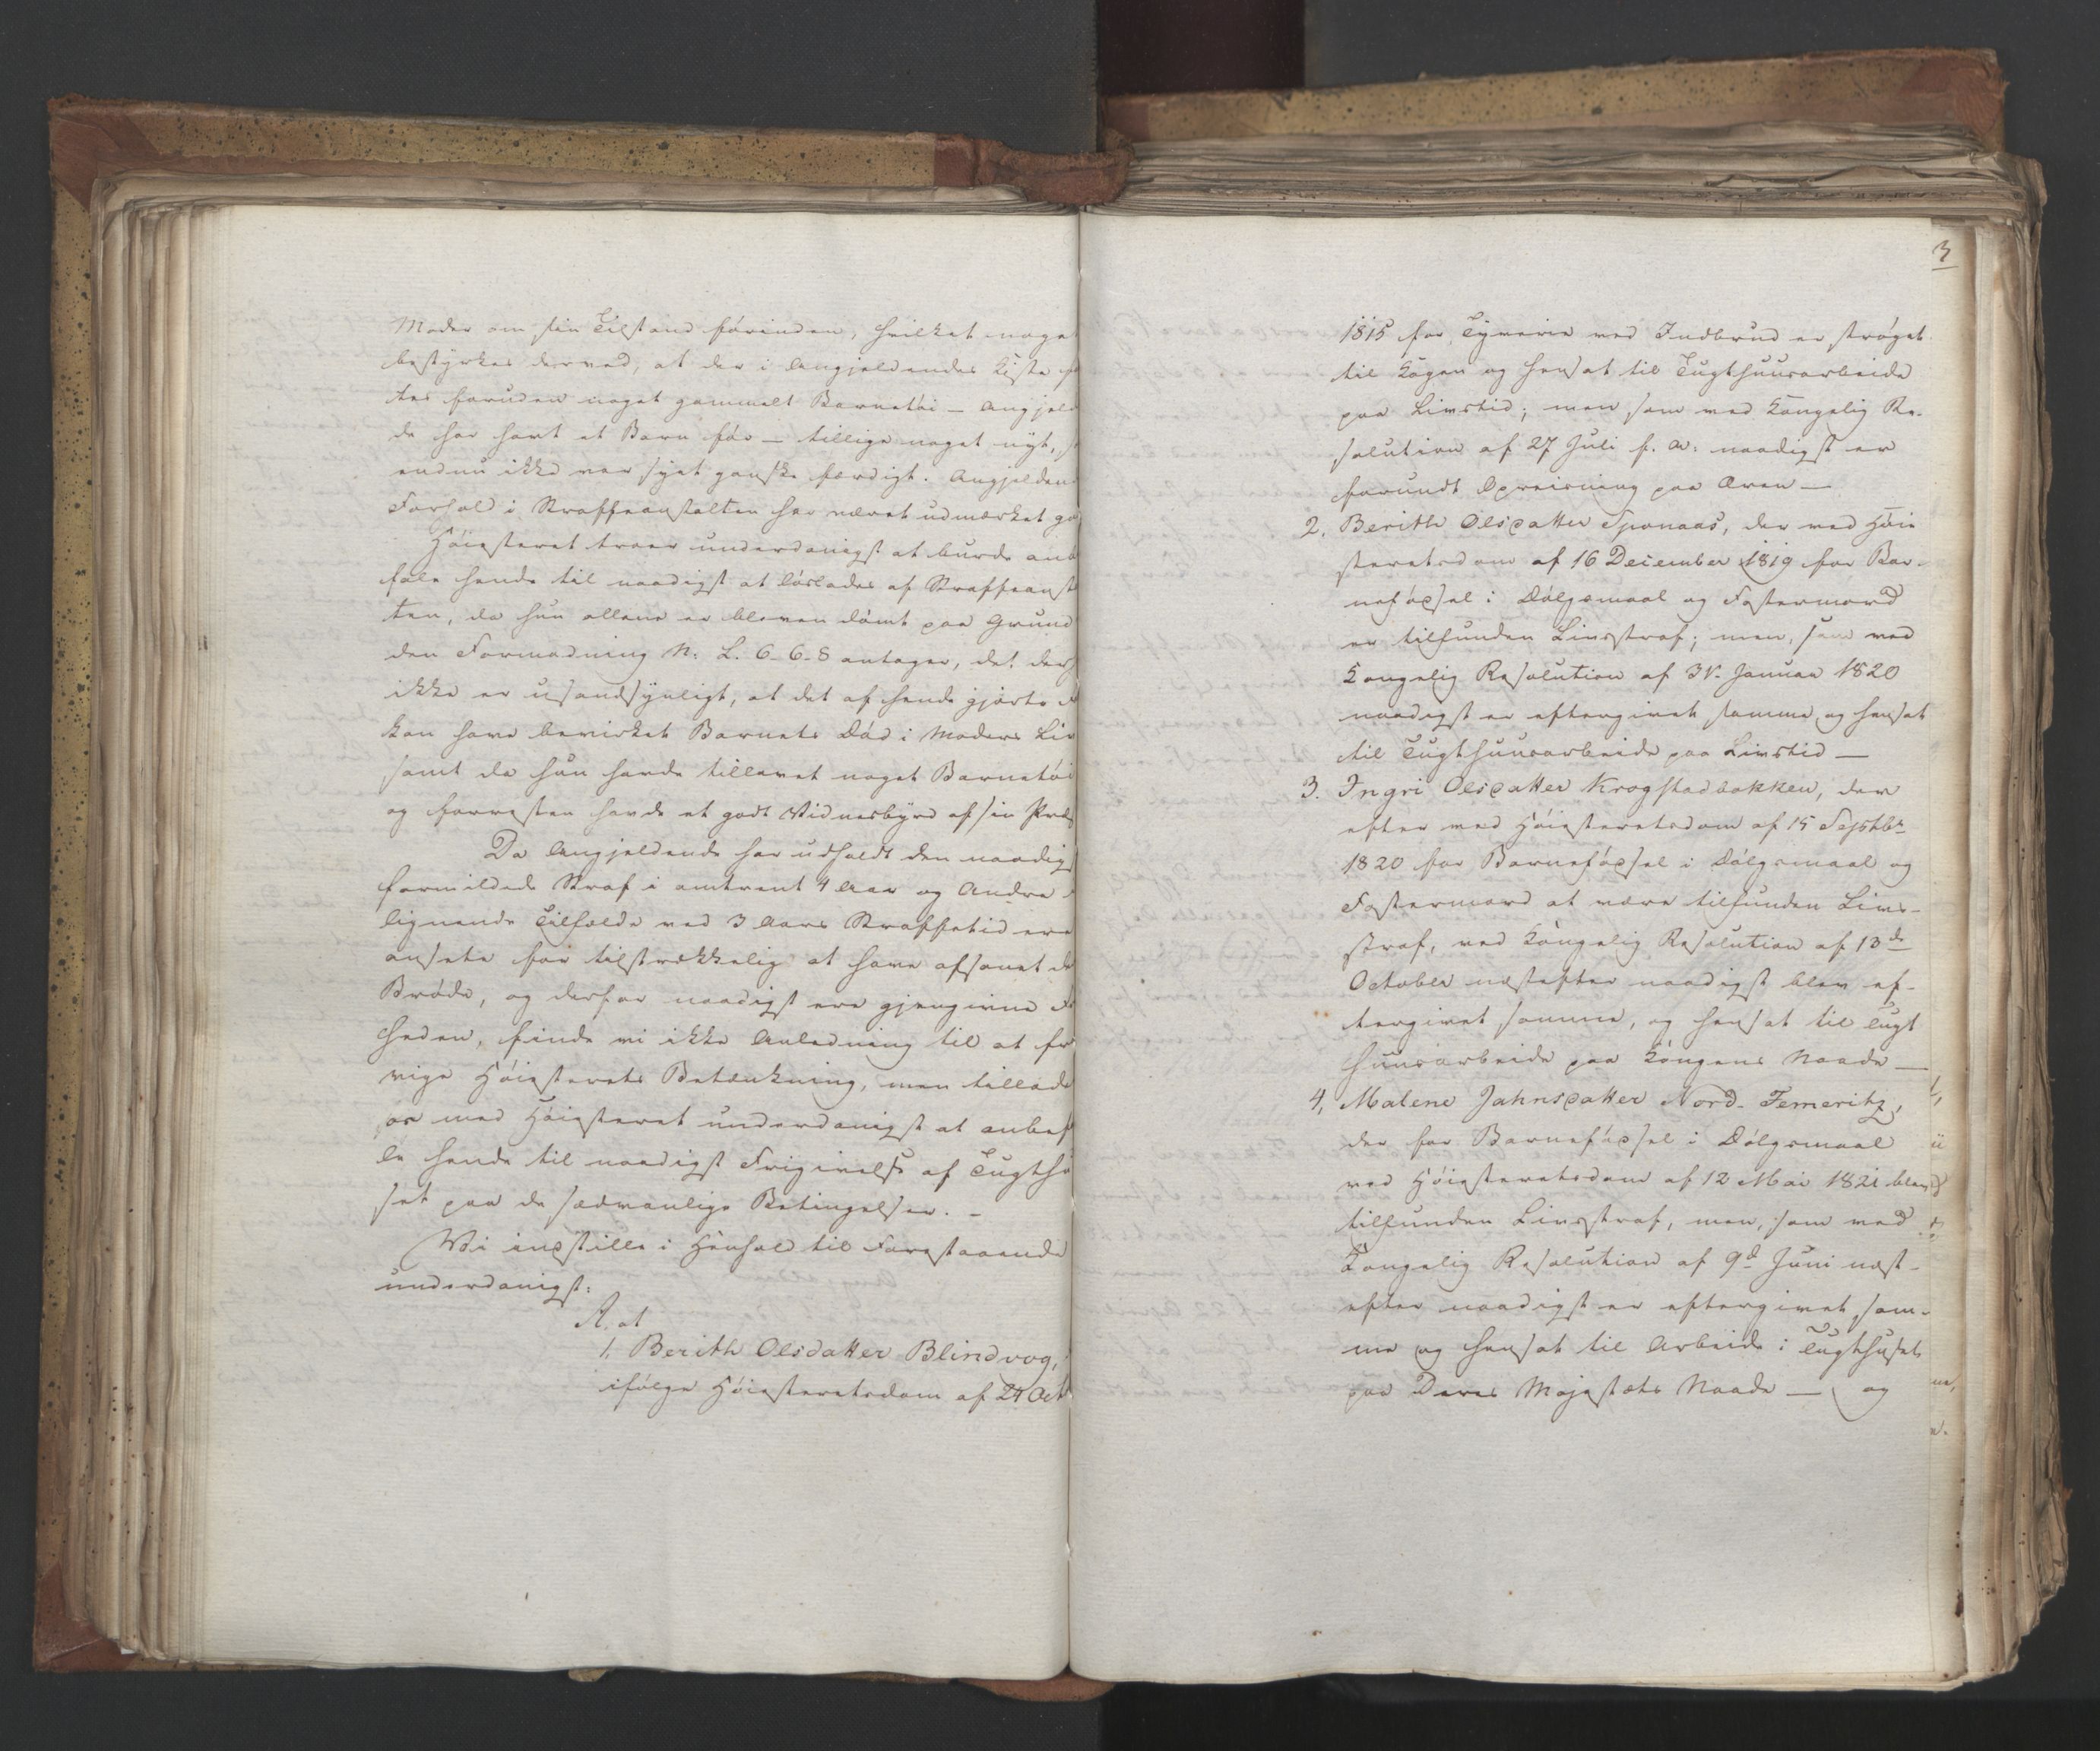 Moder om sin Tilstand forinden, hvilket noget
bestyrkes derved, at der i Angjeldendes Kiste
tes foruden noget gammelt Barnetøi — Angjeld
de har havt et Barn før — tillige noget nyt,
endnu ikke var syet ganske færdigt. Angjelden
Forhold i Straffeanstalten har været udmærket go
Høiesteret troer underdanigst at burde anb
fale hende til naadigst at løslades af Straffeanst
ten, da hun allene er bleven dømt paa Grund
den Formodning N: L. 6-6-8 antager, det der
ikke er usandsynligt, at det af hende gjorte
kan have bevirket Barnets Død i Moders Liv
samt da hun havde tillavet noget Barnetøi
og forresten havde et godt Vidnesbyrd af sin Præs
Da Angjeldende har udholdt den naadigs
formildede Straf i omtrent 4 Aar og Andre
lignende Tilfælde ved 3 Aars Straffetid ere
ansete for tilstrækkelig at have afsonet de
Brøde, og derfor naadigst ere gjengivne
heden, finde vi ikke Anledning til at fra
vige Høiesterets Betænkning, men tillade
os med Høiesteret underdanigst at anbef
le hende til naadigst Frigivelse af Tugthu
set paa de sædvanlige Betingelser. -
Vi indstille i Henhold til Forestaaende
underdanigst:
A. at
1. Berith Olsdatter Blindvog,
ifølge Høiesteretsdom af 24 Oct
3
1815 for Tyverie ved Indbrud er strøget
til Kagen og hensat til Tugthuusarbeide
paa Livstid; men som ved Kongelig Re-
solution af 27 Juli f. A: naadigst er
forundt Opreisning paa Æren —
2. Berith Olsdatter Sponaas, der ved Høie
steretsdom af 16 December 1819 for Bar-
nefødsel i Dølgsmaal og Fostermord
er tilfunden Livsstraf; men, som ved
Kongelig Resolution af 31. Januar 1820
naadigst er eftergivet samme, og hensat
til Tugthuusarbeide paa Livstid —
3. Ingri Olsdatter Krogstadbakken, der
efter ved Høiesteretsdom af 15 Septbr
1820 for Barnefødsel i Dølgsmaal og
Fostermord at være tilfunden Livs-
straf, ved Kongelig Resolution af 13de
October næstefter naadigst blev ef-
tergivet samme, og hensat til Tugt
huusarbeide paa Kongens Naade —
4. Malene Jahnsdatter Nord-Femeritz,
der for Barnefødsel i Dølgsmaal
ved Høiesteretsdom af 12 Mai 1821 blev
tilfunden Livsstraf, men, som ved
Kongelig Resolution af 9d Juni næst-
efter naadigst er eftergivet sam-
me og hensat til Arbeide i Tugthuset
paa Deres Majestæts Naade — og